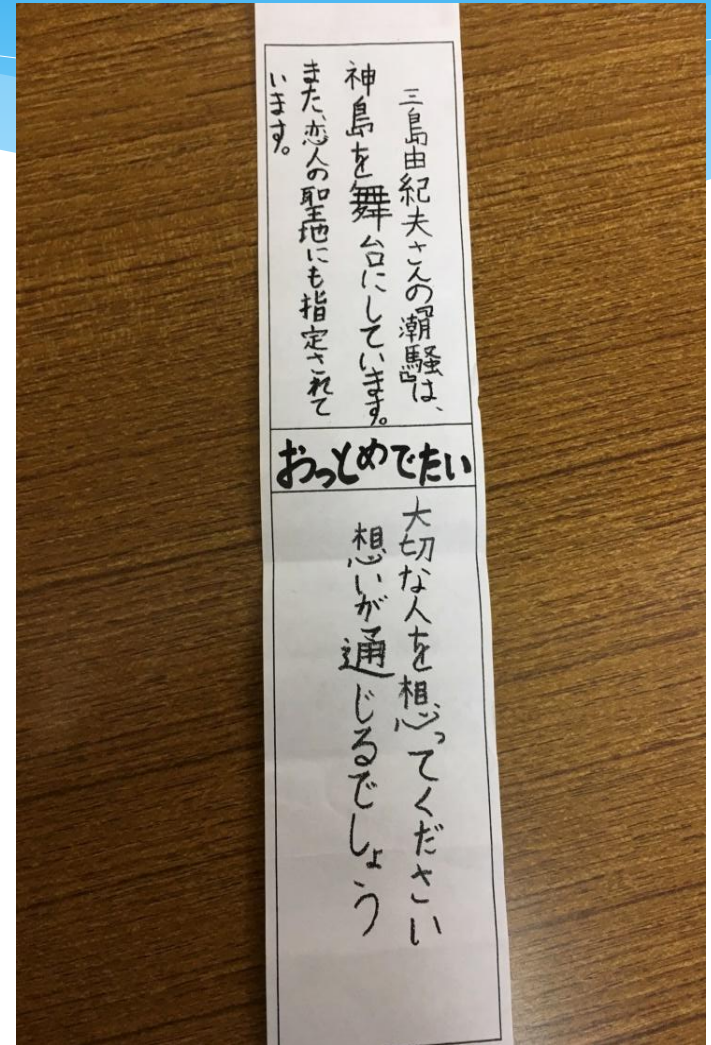 三島由紀夫さんの『潮騒』は、
神島を舞台にしています。
また、恋人の聖地にも指定されて
います。
おっとめでたい
大切な人を想ってください
想いが通じるでしょう